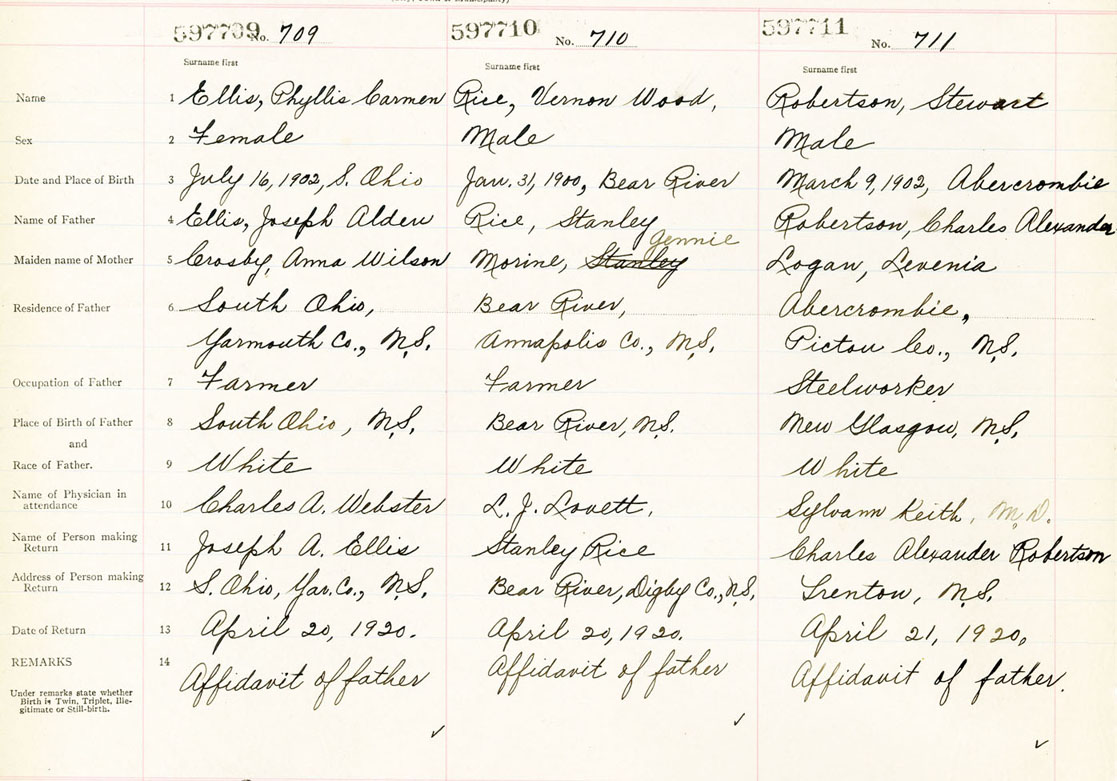 597709 No. 709 597710 No. 710 597711 No. 711
Surname first Surname first Surname first
Name 1 Ellis, Phyllis Carmen Rice, Vernon Wood, Robertson, Stewart
Sex 2 Female Male Male
Date and Place of Birth 3 July 16, 1902, S. Ohio Jan. 31, 1900, Bear River March 9, 1902, Abercrombie
Name of Father 4 Ellis, Joseph Alden Rice, Stanley Robertson, Charles Alexander
Jennie
Maiden name of Mother 5 Crosby, Anna Wilson Morine, Stanley Logan, Levenia
Residence of Father 6 South Ohio, Bear River, Abercrombie,
Yarmouth Co., N.S. Annapolis Co., N.S. Pictou Co., N.S.
Occupation of Father 7 Farmer Farmer Steelworker
Place of Birth of Father 8 South Ohio, N.S. Bear River, N.S. New Glasgow, N.S.
and
Race of Father. 9 White White White
Name of Physician in
attendance 10 Charles A. Webster L. J. Lovett. Sylvann Keith, M.D.
Name of Person making
Return 11 Joseph A. Ellis Stanley Rice Charles Alexander Robertson
Address of Person making
Return 12 S. Ohio, Yar. Co., N.S. Bear River, Digby Co., N.S. Trenton, N.S.
Date of Return 13 April 20, 1920. April 20, 1920. April 21, 1920.
REMARKS 14 Affidavit of father Affidavit of father Affidavit of father.
Under remarks state whether
Birth is Twin, Triplet, Ille-
gitimate or Still-birth.